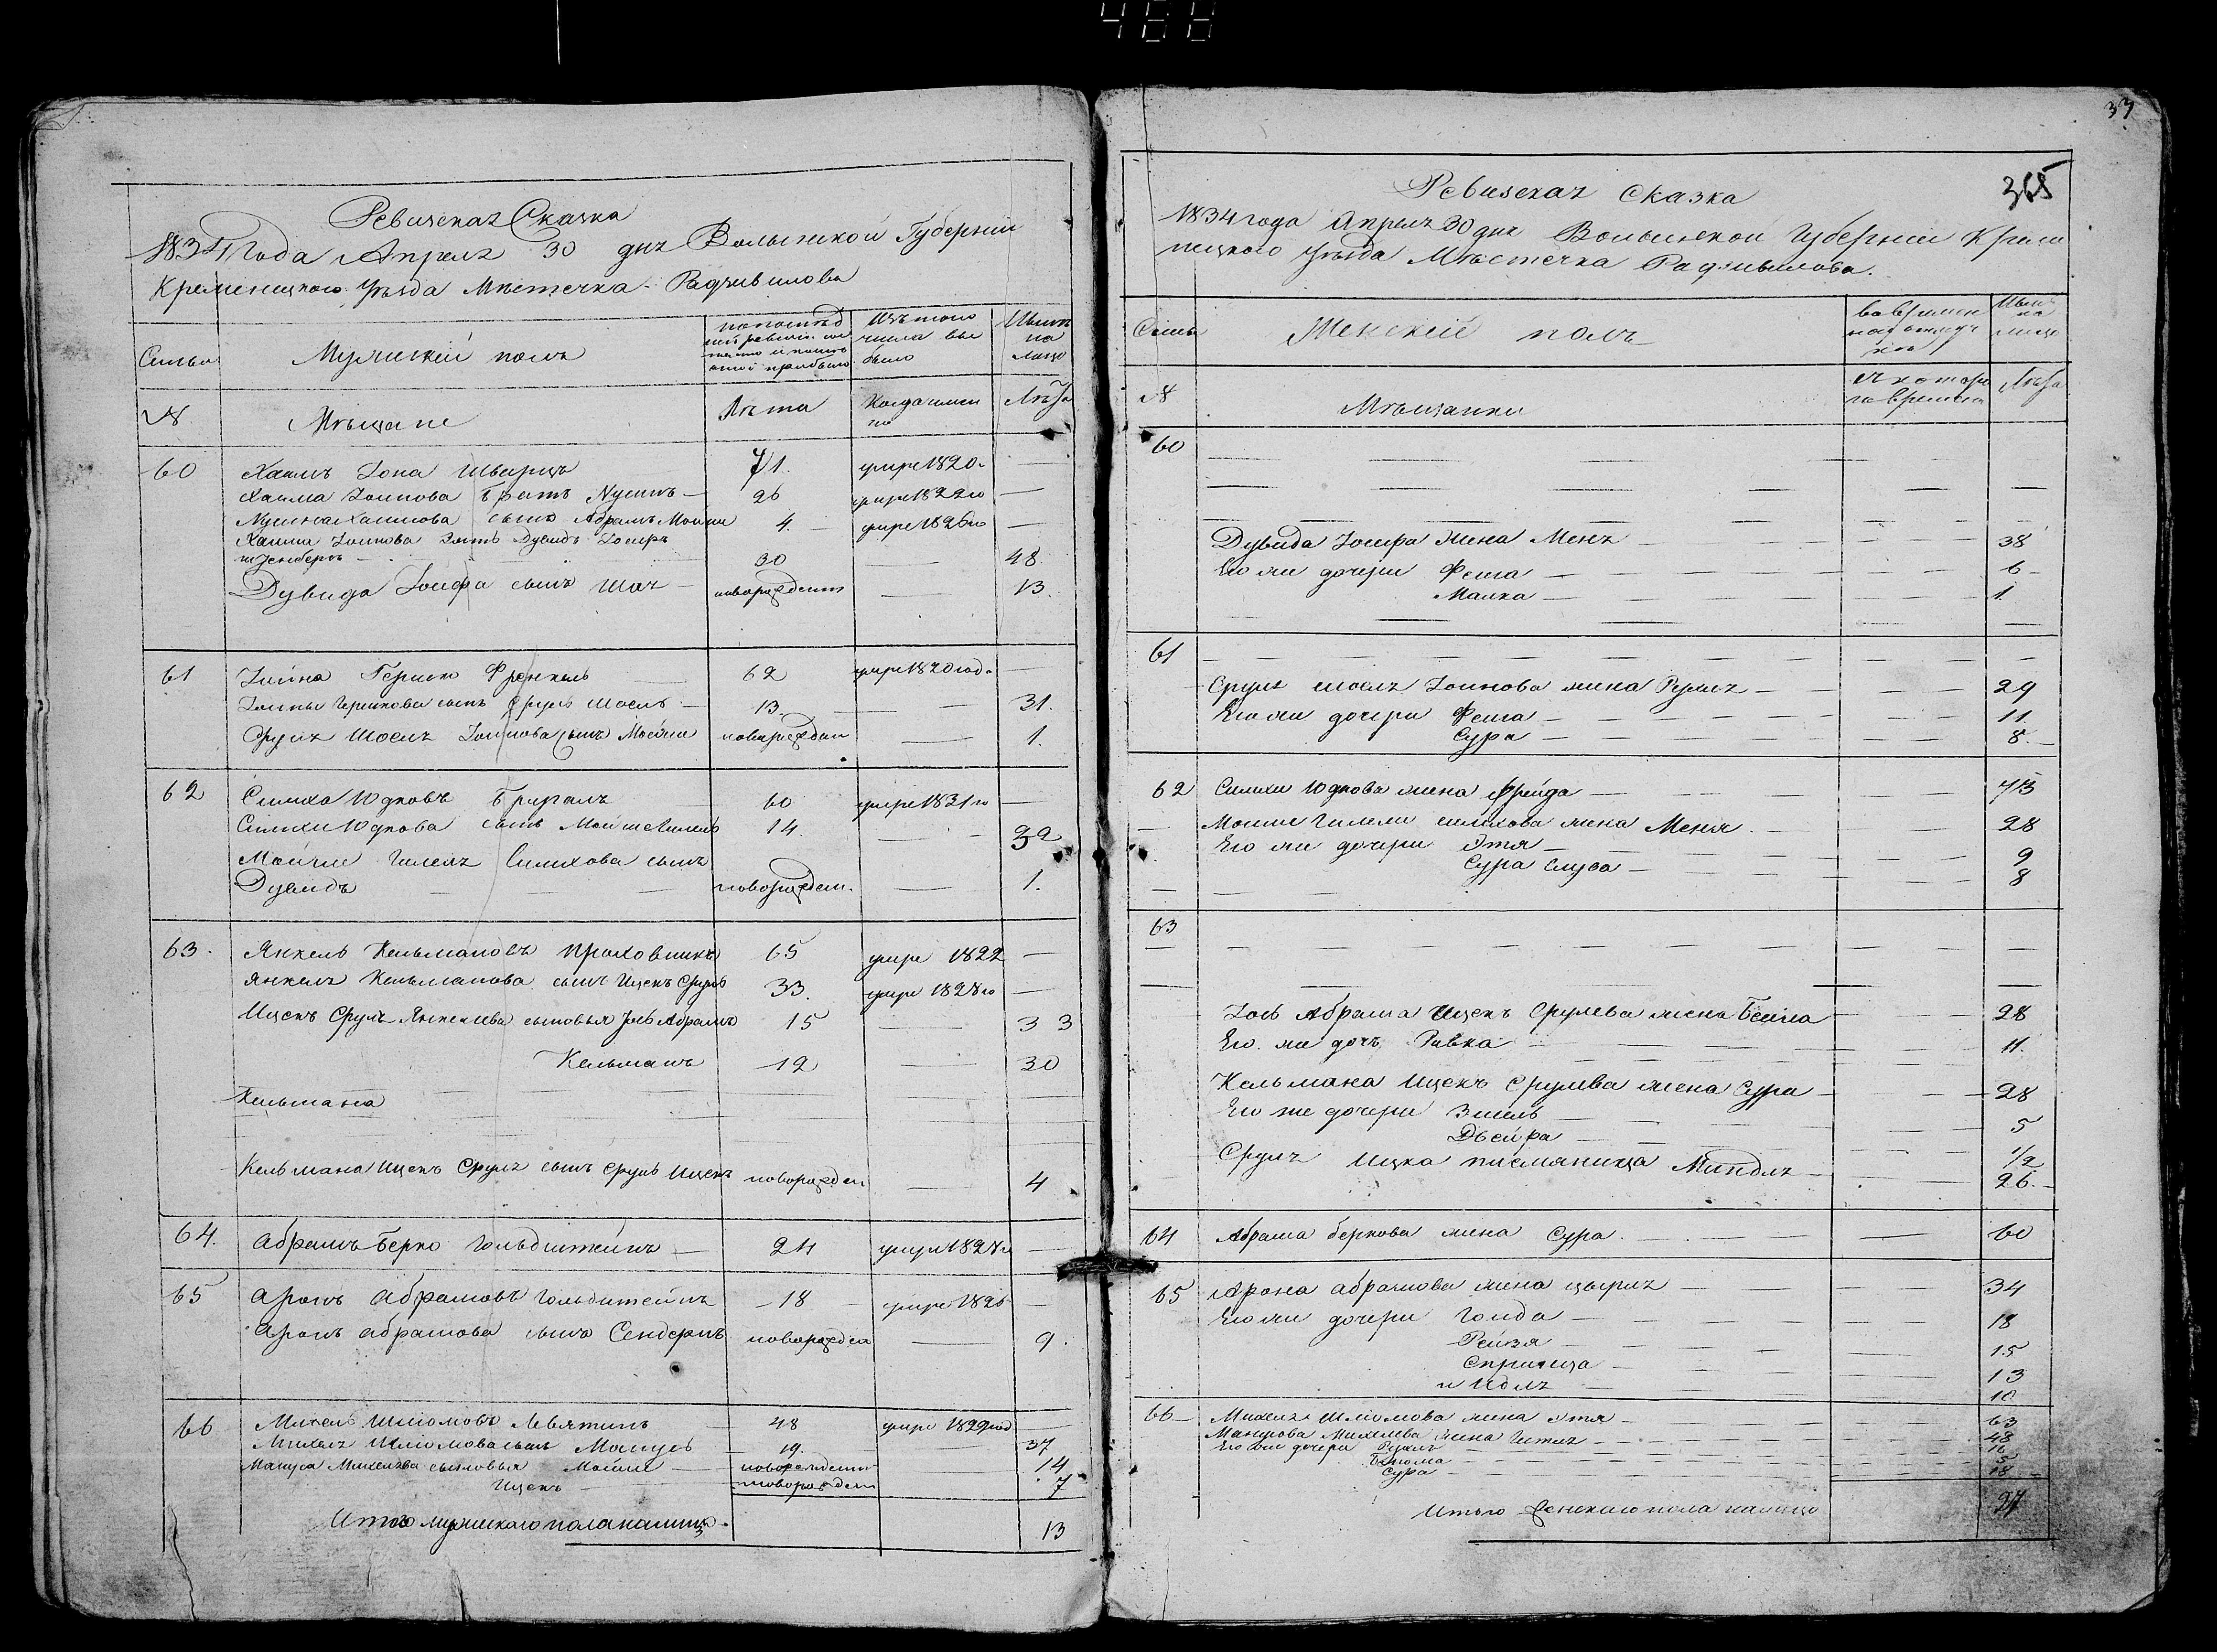 468
Ревизская Сказка
1834 Года Апреля 30 дня Волынской Губернии
Кременецкого Уѣзда Мѣстечка Радзивилова
Семьи
Мужеский полъ
Изъ того числа выбыло
Нынѣ на лицо
№
Мѣщане
Лѣта
Когда именно
Лѣта
60 Хаимъ Іона Шварцъ 71. умре 1820.
Хаима Іоинова Братъ Нусинъ 26 умре 1822го
Нусина Хаимова сынъ Абрамъ Мошки 4. умре 1826го
Хаима Іоинова Зять Дувидъ Іосифъ
30 48.
Дувида Іосифа сынъ Шая новорожденъ 13.
61 Іойна Гершко Френкель 62 умре 1820 год.
Іойны Гершкова сынъ Сруль Шоель 13. 31.
Сруля Шоеля Іоинова сынъ Мойше новорожден 1.
62 Симха Юдковъ 60 умре 1831го
Симхи Юдкова сынъ Мойше Гилель 14. 32
Мойше Гилеля Симхова сынъ
Дувидъ новорожден. 1.
63. Янкель Кельмановъ Проховникъ 65 умре 1822
Янкеля Кельманова сынъ Ицекъ Сруль 33. умре 1828го
Ицекъ Сруля Янкелева сыновья Іось Абрамъ 15 33
Кельманъ 12 30
Кельмана
Кельмана Ицекъ Сруля сынъ Сруль Ицекъ новорожден 4
64. Абрамъ Берко Гольдштейнъ 24 умре 1828го
65 Аронъ Абрамовъ Гольдштейнъ 18 умре 1826
Аронъ Абрамова сынъ Сендеръ новорожден 9.
66 Михель Шліомовъ Левятинъ 48 умре 1822 год
Михеля Шліомова сынъ Манусъ 19. 37
Мануса Михелева сыновья Мойше новорожден 14
Ицекъ новорожден 7
Итого мужеского пола на лицо. 13
37
365
Ревизская Сказка
1834 года Апреля 30 дня Волынской Губернии Креме
нецкого Уѣзда Мѣстечка Радзивилова.
Семьи
Женский полъ
Нынѣ на лицо
№
Мѣщанки
Лѣта
60
Дувида Іосифа жена Меня 38
Его же дочери Фейга 6
Малка 1
61
Сруля Шоеля Іоинова жена Рухля 29
Его же дочери Фейга 11
Сура 8.
62 Симхи Юдкова жена Фрейда 73
Мойше Гилели Симхова жена Меня 28
Его же дочери Этя 9
Сура Слува 8
63
Іось Абрама Ицекъ Срулева жена Бейла 28
Его же дочь Ривка 11.
Кельмана Ицекъ Срулева жена Сура 28
Его же дочери Змель 5
Двейра 1/2
Сруля Ицка племяница Миндля 26.
64 Абрама Беркова жена Сура 60
65 Арона Абрамова жена Цырля 34
Его же дочери Голда 18
Рейзя 15
Спринца 13
и Идля 10
66 Михеля Шліомова жена Этя 63
Манусова Михелева жена Гитля 48
Его же дочери Рухля 16
Блюма 5
Сура 18
Итого женского пола на лицо 27